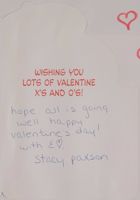 WISHING YOU
LOTS OF VALENTINE
X'S AND O'S!
hope all is going
well happy
valentine's day!
with £♡
Stacy paxson